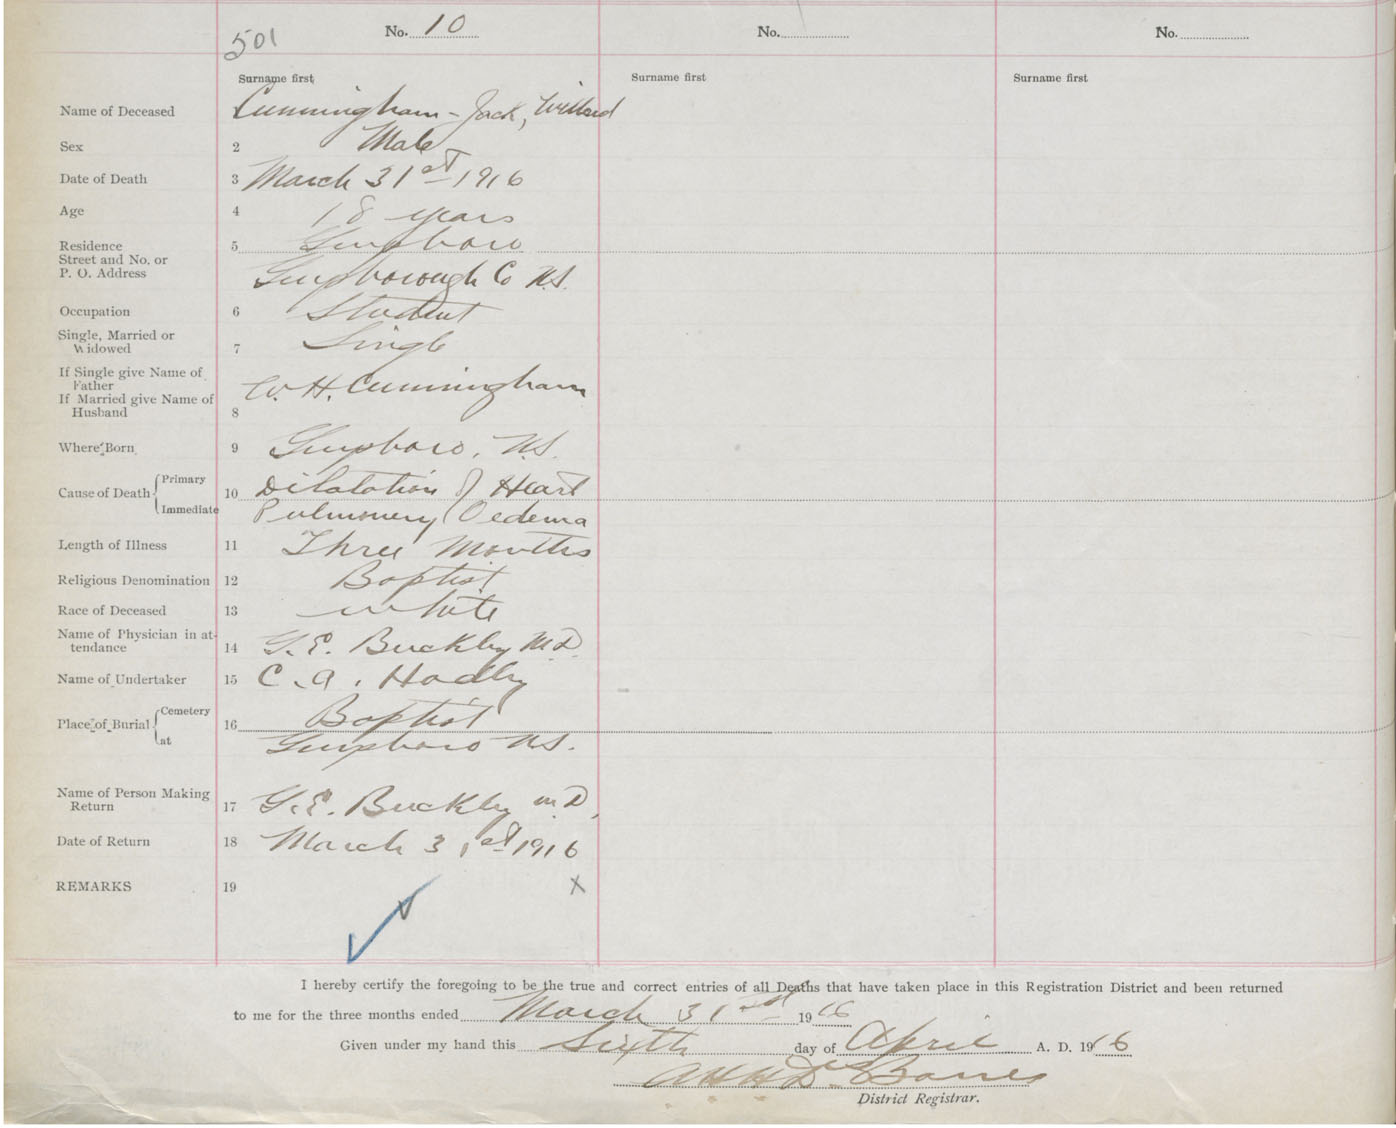 501
No. 10 No. No.
Surname first Surname first Surname first
Name of Deceased 1 Cunningham - Jack, Willard
Sex 2 Male
Date of Death 3 March 31st 1916
Age 4 18 years
Residence 5 Guysboro
Street and No. or
P. O. Address Guysborough Co N.S.
Occupation 6 Student
Single, Married or
Widowed 7 Single
If Single give Name of
Father W. H. Cunningham
If Married give Name of
Husband 8
Where Born 9 Guysboro, N.S.
Cause of Death Primary 10 Dilatation of Heart
Immediate Pulmonery Oedema
Length of Illness 11 Three Months
Religious Denomination 12 Baptist
Race of Deceased 13 white
Name of Physician in at-
tendance 14 G. E. Buckley M.D.
Name of Undertaker 15 C. A. Hadley
Place of Burial Cemetery 16 Baptist
at Guysboro N.S.
Name of Person Making
Return 17 G. E. Buckley M.D.
Date of Return 18 March 31st 1916
REMARKS 19 X
I hereby certify the foregoing to be the true and correct entries of all Deaths that have taken place in this Registration District and been returned
to me for the three months ended March 31st 1916
Given under my hand this Sixth day of April A. D. 1916
District Registrar.